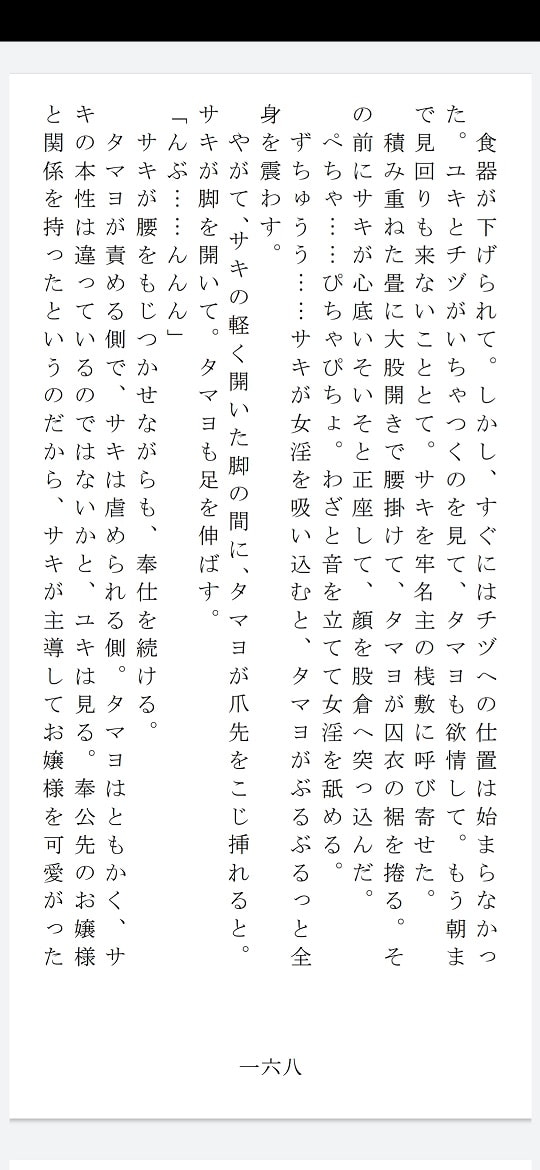 食器が下げられて。しかし、すぐにはチヅへの仕置は始まらなかっ
た。ユキとチヅがいちゃつくのを見て、タマヨも欲情して。もう朝ま
で見回りも来ないこととて。サキを牢名主の桟敷に呼び寄せた。
積み重ねた畳に大股開きで腰掛けて、タマヨが囚衣の裾を捲る。そ
の前にサキが心底いそいそと正座して、顔を股倉へ突っ込んだ。
ぺちゃ……ぴちゃぴちょ。わざと音を立てて女淫を舐める。
ずちゅうう……サキが女淫を吸い込むと、タマヨがぶるぶるっと全
身を震わす。
やがて、サキの軽く開いた脚の間に、タマヨが爪先をこじ挿れると。
サキが脚を開いて。タマヨも足を伸ばす。
「んぶ……んんん」
サキが腰をもじつかせながらも、奉仕を続ける。
タマヨが責める側で、サキは虐められる側。タマヨはともかく、サ
キの本性は違っているのではないかと、ユキは見る。奉公先のお嬢様
と関係を持ったというのだから、サキが主導してお嬢様を可愛がった
一六八